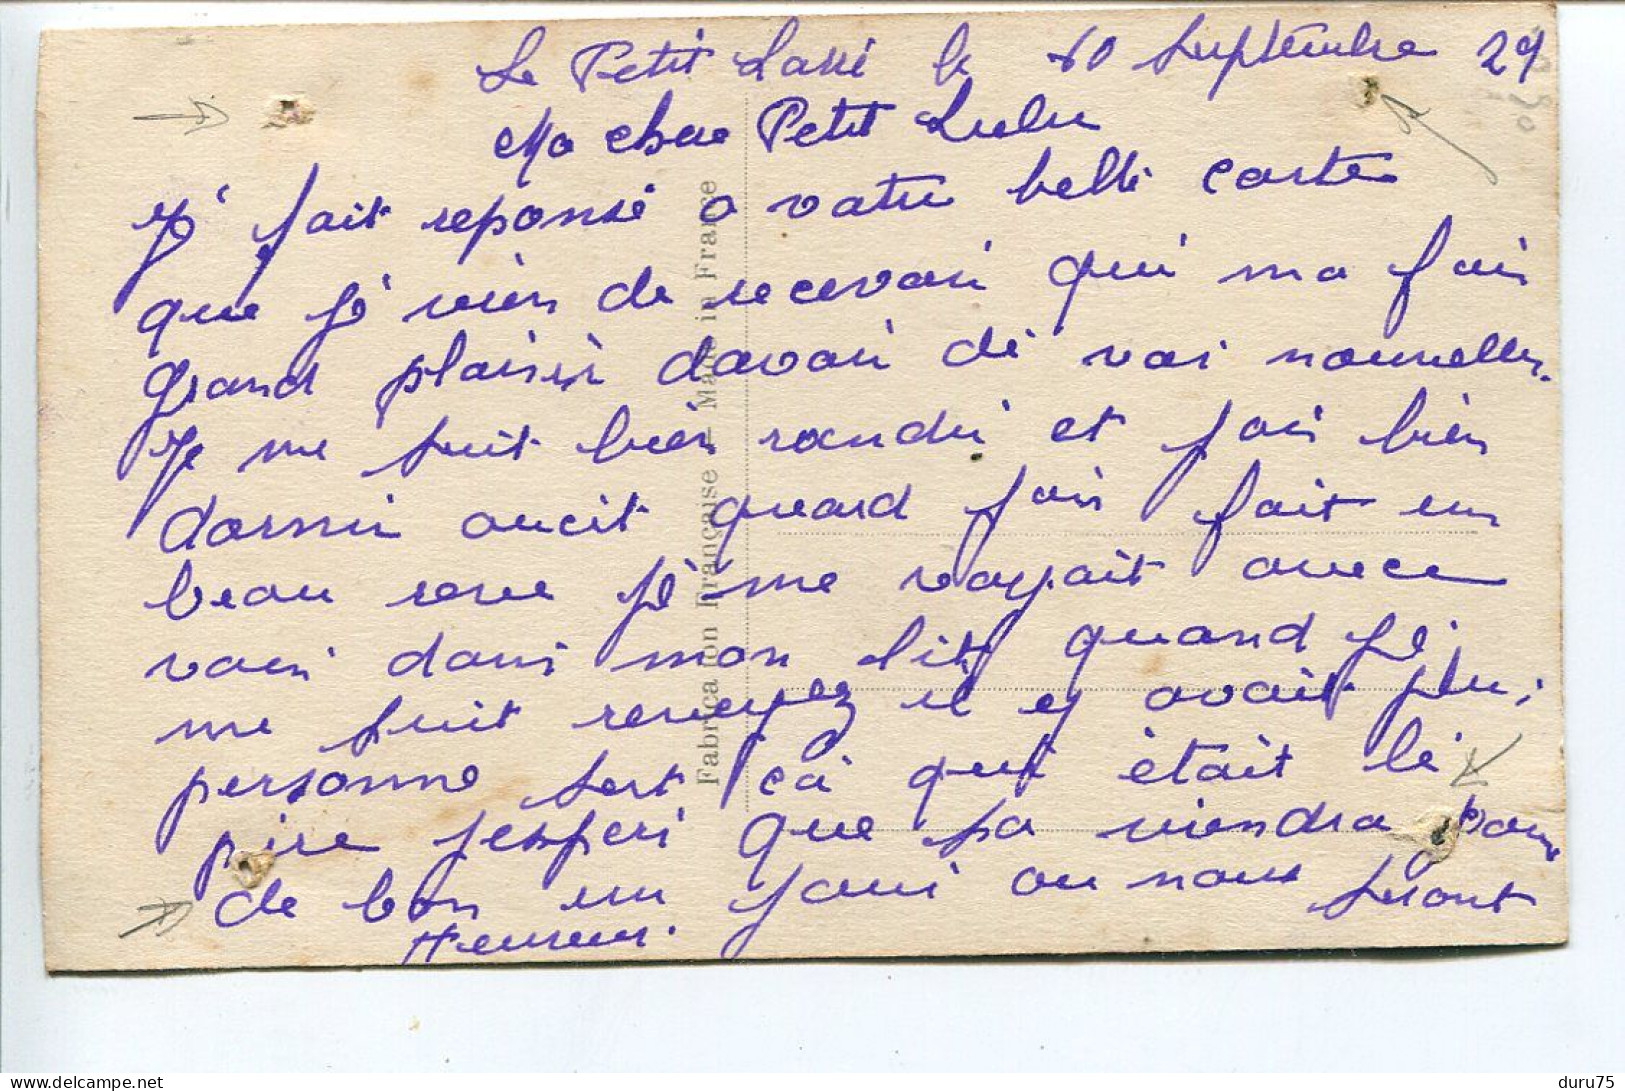 Le Petit Lassé le 10 Septembre 29
Ma chere Petit Lulu
Je fait reponse a votre belle carte
que je vien de recevoir qui ma fais
grand plaisir davoir de vos nouvelles.
Je me suit bien randu et jais bien
dormi oucit quard jais fait un
beau reve je me voyait avece
vous dans mon lit quand je
me suit reveyez il ey avait plus
personne sert ca qui était le
pire jesperé que sa viendra pour
de bon un jour ou nous seront
Heureux.
Fabrication Française — Made in France
delcampe.net
duru75